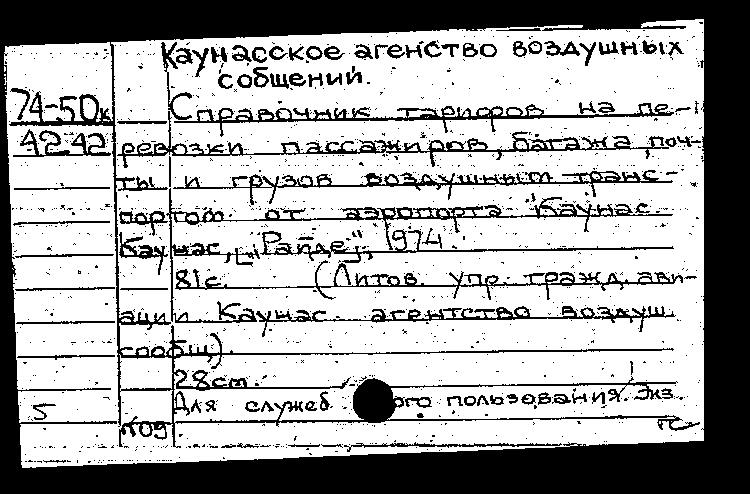 Каунасское агенство воздушных
собщений.
74-50к Справочник тарифов на пе-
42.42 ревозки пассажиров, багажа, поч-
ты и грузов воздушным транс-
портом от аэропорта Каунас.
Каунас, ["Райде"], 1974.
81с. (Литов. упр. гражд. ави-
ации Каунас. агентство воздуш.
сообщ).
28см.
Для служеб ого пользования. Экз.
5 №09